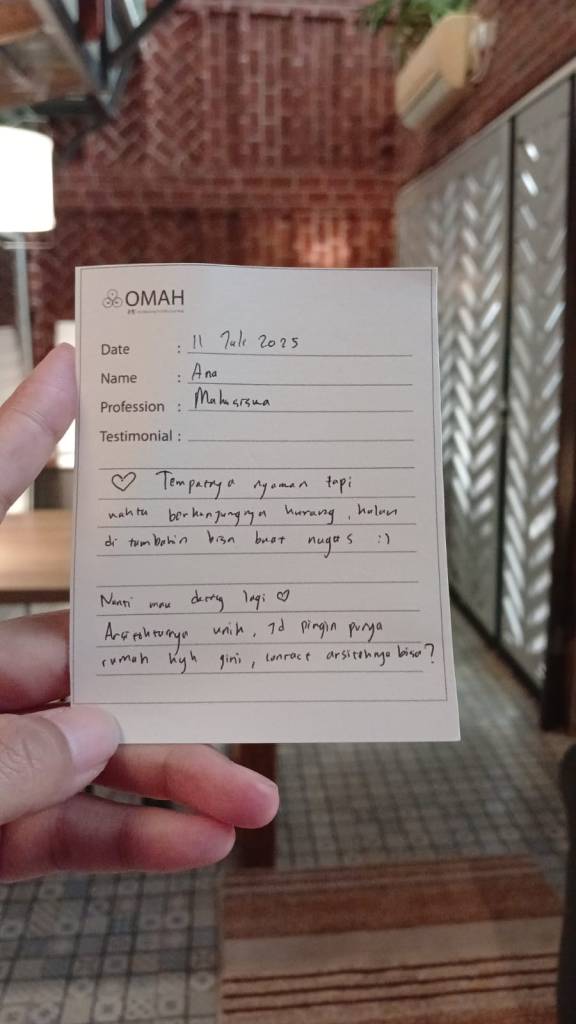 OMAH
Date : 11 Juli 2025
Name : Ana
Profession : Mahasiswa
Testimonial :
♡ Tempatnya nyaman tapi
waktu berkunjungnya kurang, kalau
di tambahin bisa buat nugas :)
Nanti mau dateng lagi ♡
Arsitekturnya unik, jd pingin punya
rumah kyk gini, contact arsiteknya bisa?